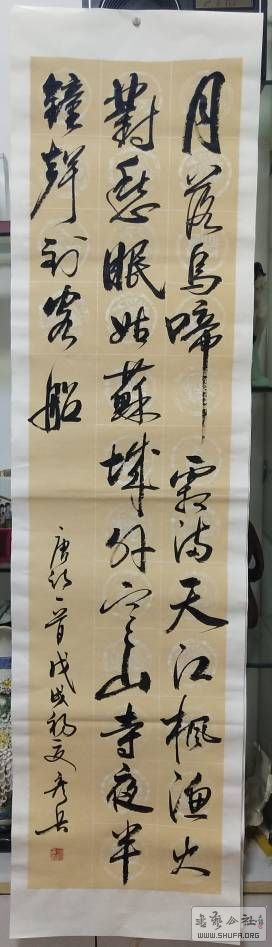 月落烏啼霜满天江楓渔火
對愁眠姑蘇城外寒山寺夜半
鐘聲到客船
唐诗一首戊戌初夏
書艺公社
WWW.SHUFA.ORG